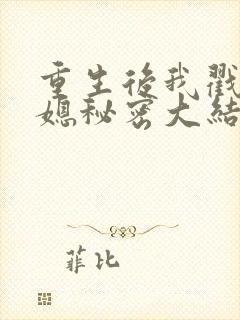 重生后我戳
媳秘密大结
菲比